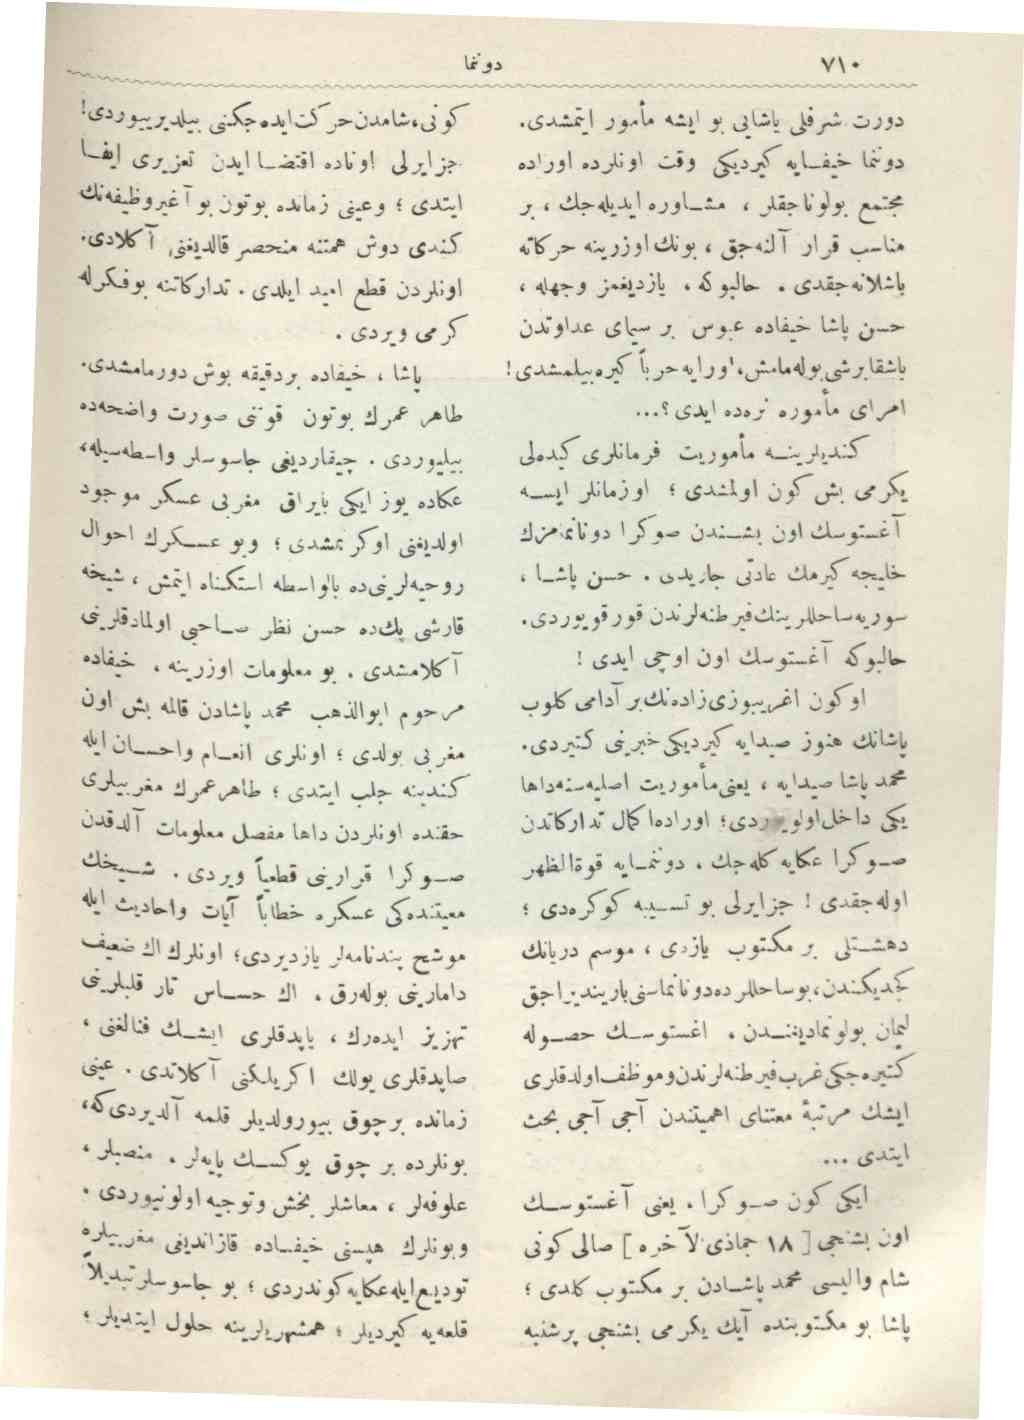 ٧١٠
دوننما
دورت شرفلی پاشایی بو ایشه مأمور ایتمشدی.
دوننما خیفـایه کیردیکی وقت اونلرده اوراده
مجتمع بولوناجقلر ، مشـاوره ایدیله‌جك ، بر
مناسب قرار آلنه‌جق ، بونك اوزرینه حرکاته
باشلانه‌جقدی . حالبوکه ، یازدیغمز وجهله ،
حسن پاشا خیفاده عبوس بر سیمای عداوتدن
باشقا برشی بوله‌مامش، اورایه حرباً کیره‌بیلمشدی!
امرای مأموره نره‌ده ایدی ؟...
کندیلرینـه مأموریت فرمانلری کیده‌لی
یکرمی بش کون اولمشدی ؛ اوزمانلر ایسـه
آغستوسك اون بشـندن صوکرا دونانمامزك
خلیجه کیرمك عادتی جاریدی . حسن پاشـا ،
سوریه‌ساحللرینك فیرطنه‌لرندن قورقویوردی.
حالبوکه آغستوسك اون اوچی ایدی !
اوکون اغریبوزی‌زاده‌نك بر آدامی کلوب
پاشانك هنوز صیدایه کیردیکی خبرینی کتیردی.
محمد پاشا صیدایه ، یعنی‌مأموریت اصلیه‌سنه‌داها
یکی داخل‌اولویوردی؛ اوراده‌ا کمال تدارکاتدن
صـوکرا عکایه کله‌جك ، دوننمـایه قوةالظهر
اوله‌جقدی ! جزایرلی بو تسـیبه کوکره‌دی ؛
دهشـتلی بر مکتوب یازدی ، موسم دریانك
کچدیکـندن، بوساحللرده‌دونانماسنی‌باریندیراجق
لیمان بولونمادیغنـدن ، اغستوسـك حصـوله
کتیره‌جکی‌غرب‌فیرطنه‌لرندن‌وموظف‌اولدقلری
ایشك مرتبۀ معتنای اهمیتندن آجی آجی بحث
ایتدی ...
ایکی کون صـوکرا ، یعنی آغستوسـك
اون بشنجی [ ١٨ جماذی‌الآخره ] صالی کونی
شام والیسی محمد پاشـادن بر مکتوب کلدی ؛
پاشا بو مکتوبنده آیك یکرمی بشنجی پرشنبه
کونی،شامدن‌حرکت‌ایده‌جکنی بیلدیرییوردی!
جزایرلی اوناده اقتضـا ایدن تعزیری ایفـا
ایتدی ؛ وعینی زمانده بوتون بو آغیروظیفه‌نك
کندی دوش همتنه منحصر قالدیغنی آکلادی.
اونلردن قطع امید ایلدی . تدارکاتنه بوفکرله
کرمی ویردی .
پاشا ، خیفاده بردقیقه بوش دورمامشدی.
طاهر عمرك بوتون قوتنی صورت واضحه‌ده
بیلیوردی . چیقاردیغی جاسوسلر واسطه‌سیله،
عکاده یوز ایکی بایراق مغربی عسکر موجود
اولدیغنی اوکرنمشدی ؛ وبو عسـکرك احوال
روحیه‌لرینی‌ده بالواسطه استکناه ایتمش ، شیخه
قارشی پك‌ده حسن نظر صـاحبی اولمادقلرینی
آکلامشدی . بو معلومات اوزرینه ، خیفاده
مرحوم ابوالذهب محمد پاشادن قالمه بش اون
مغربی بولدی ؛ اونلری انعـام واحسـان ایله
کندینه جلب ایتدی ؛ طاهرعمرك مغربیلری
حقنده اونلردن داها مفصل معلومات آلدقدن
صـوکرا قرارینی قطعیاً ویردی . شـیخك
معیتنده‌کی عسکره خطاباً آیات واحادیث ایله
موشح پندنامه‌لر یازدیردی؛ اونلرك اك ضعیف
دامارینی بوله‌رق ، اك حسـاس تار قلبلرینی
تهزیز ایده‌رك ، یاپدقلری ایشـك فنالغنی ،
صاپدقلری یولك اکریلکنی آکلاتدی . عینی
زمانده برچوق بیورولدیلر قلمه آلدیردی‌که،
بونلرده بر چوق یوکسـك پایه‌لر ، منصبلر ،
علوفه‌لر ، معاشلر بخش وتوجیه اولونیوردی .
وبونلرك هپسنی خیفـاده قازاندیغی مغربیلره
تودیع‌ایله‌عکایه‌کوندردی ؛ بو جاسوسلرتبدیلاً
قلعه‌یه کیردیلر ؛ همشهریلرینه حلول ایتدیلر ؛